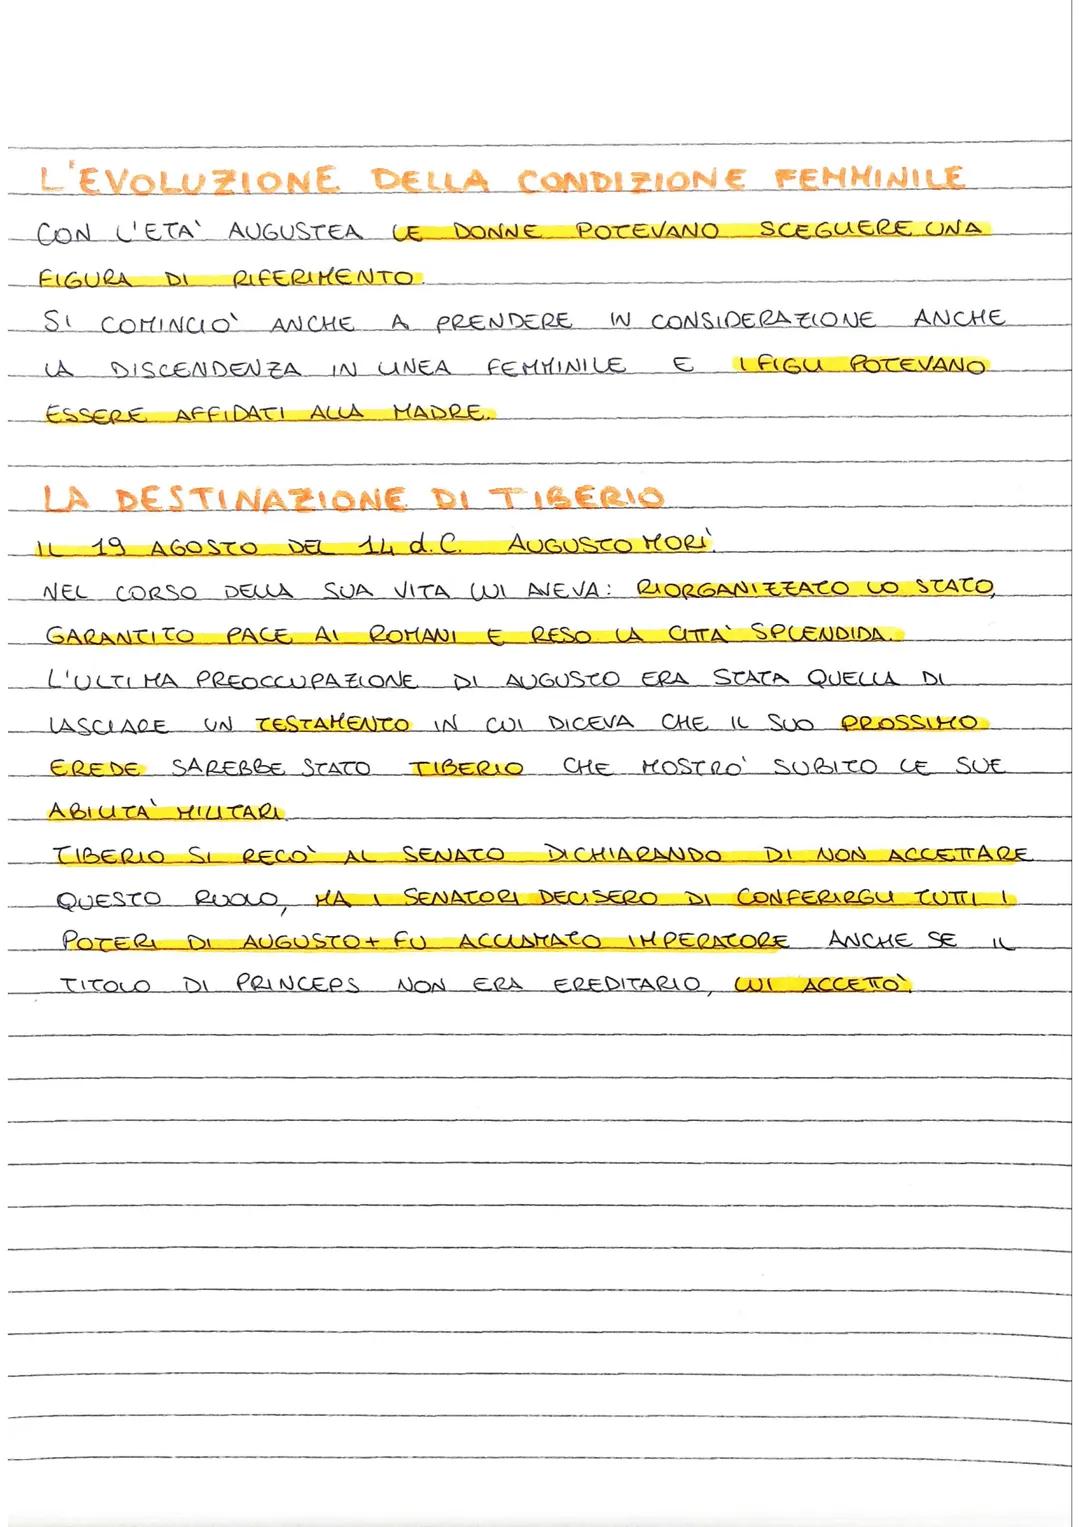 L'EVOLUZIONE DELLA CONDIZIONE FEMMINILE
CON L'ETA' AUGUSTEA LE DONNE POTEVANO SCEGLIERE UNA
FIGURA DI RIFERIMENTO.
SI COMINCIO' ANCHE A PRENDERE IN CONSIDERAZIONE ANCHE
LA DISCENDENZA IN LINEA FEMMINILE E I FIGLI POTEVANO
ESSERE AFFIDATI ALLA MADRE.
LA DESTINAZIONE DI TIBERIO
IL 19 AGOSTO DEL 14 d.C. AUGUSTO MORI'.
NEL CORSO DELLA SUA VITA LUI AVEVA: RIORGANIZZATO LO STATO,
GARANTITO PACE AI ROMANI E RESO LA CITTA' SPLENDIDA.
L'ULTIMA PREOCCUPAZIONE DI AUGUSTO ERA STATA QUELLA DI
LASCIARE UN TESTAMENTO IN CUI DICEVA CHE IL SUO PROSSIMO
EREDE SAREBBE STATO TIBERIO CHE MOSTRO' SUBITO LE SUE
ABILITA' MILITARI.
TIBERIO SI RECO' AL SENATO DICHIARANDO DI NON ACCETTARE
QUESTO RUOLO, MA I SENATORI DECISERO DI CONFERIRGLI TUTTI I
POTERI DI AUGUSTO + FU ACCLAMATO IMPERATORE ANCHE SE IL
TITOLO DI PRINCEPS NON ERA EREDITARIO, LUI ACCETTO'.